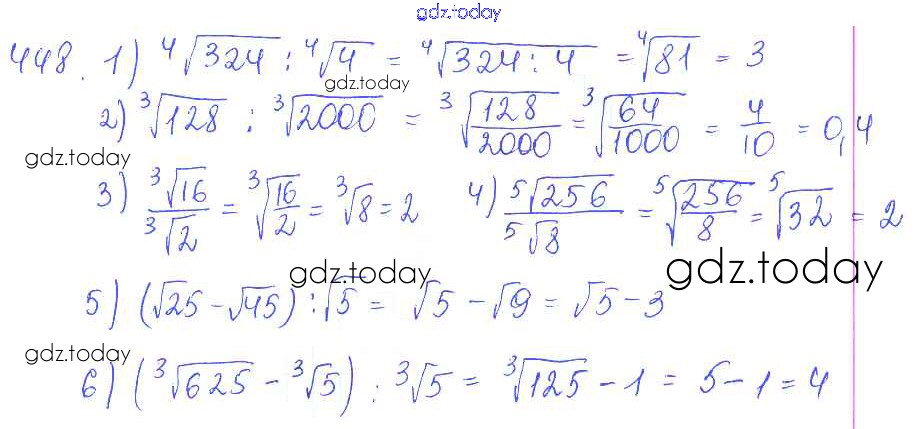 gdz.today
448. 1) ⁴√324 : ⁴√4 = ⁴√(324 : 4) = ⁴√81 = 3
gdz.today
2) ³√128 : ³√2000 = ³√(128/2000) = ³√(64/1000) = 4/10 = 0,4
gdz.today
3) ³√16/³√2 = ³√(16/2) = ³√8 = 2 4) ⁵√256/⁵√8 = ⁵√(256/8) = ⁵√32 = 2
gdz.today gdz.today
5) (√25 - √45) : √5 = √5 - √9 = √5 - 3
gdz.today
6) (³√625 - ³√5) : ³√5 = ³√125 - 1 = 5 - 1 = 4